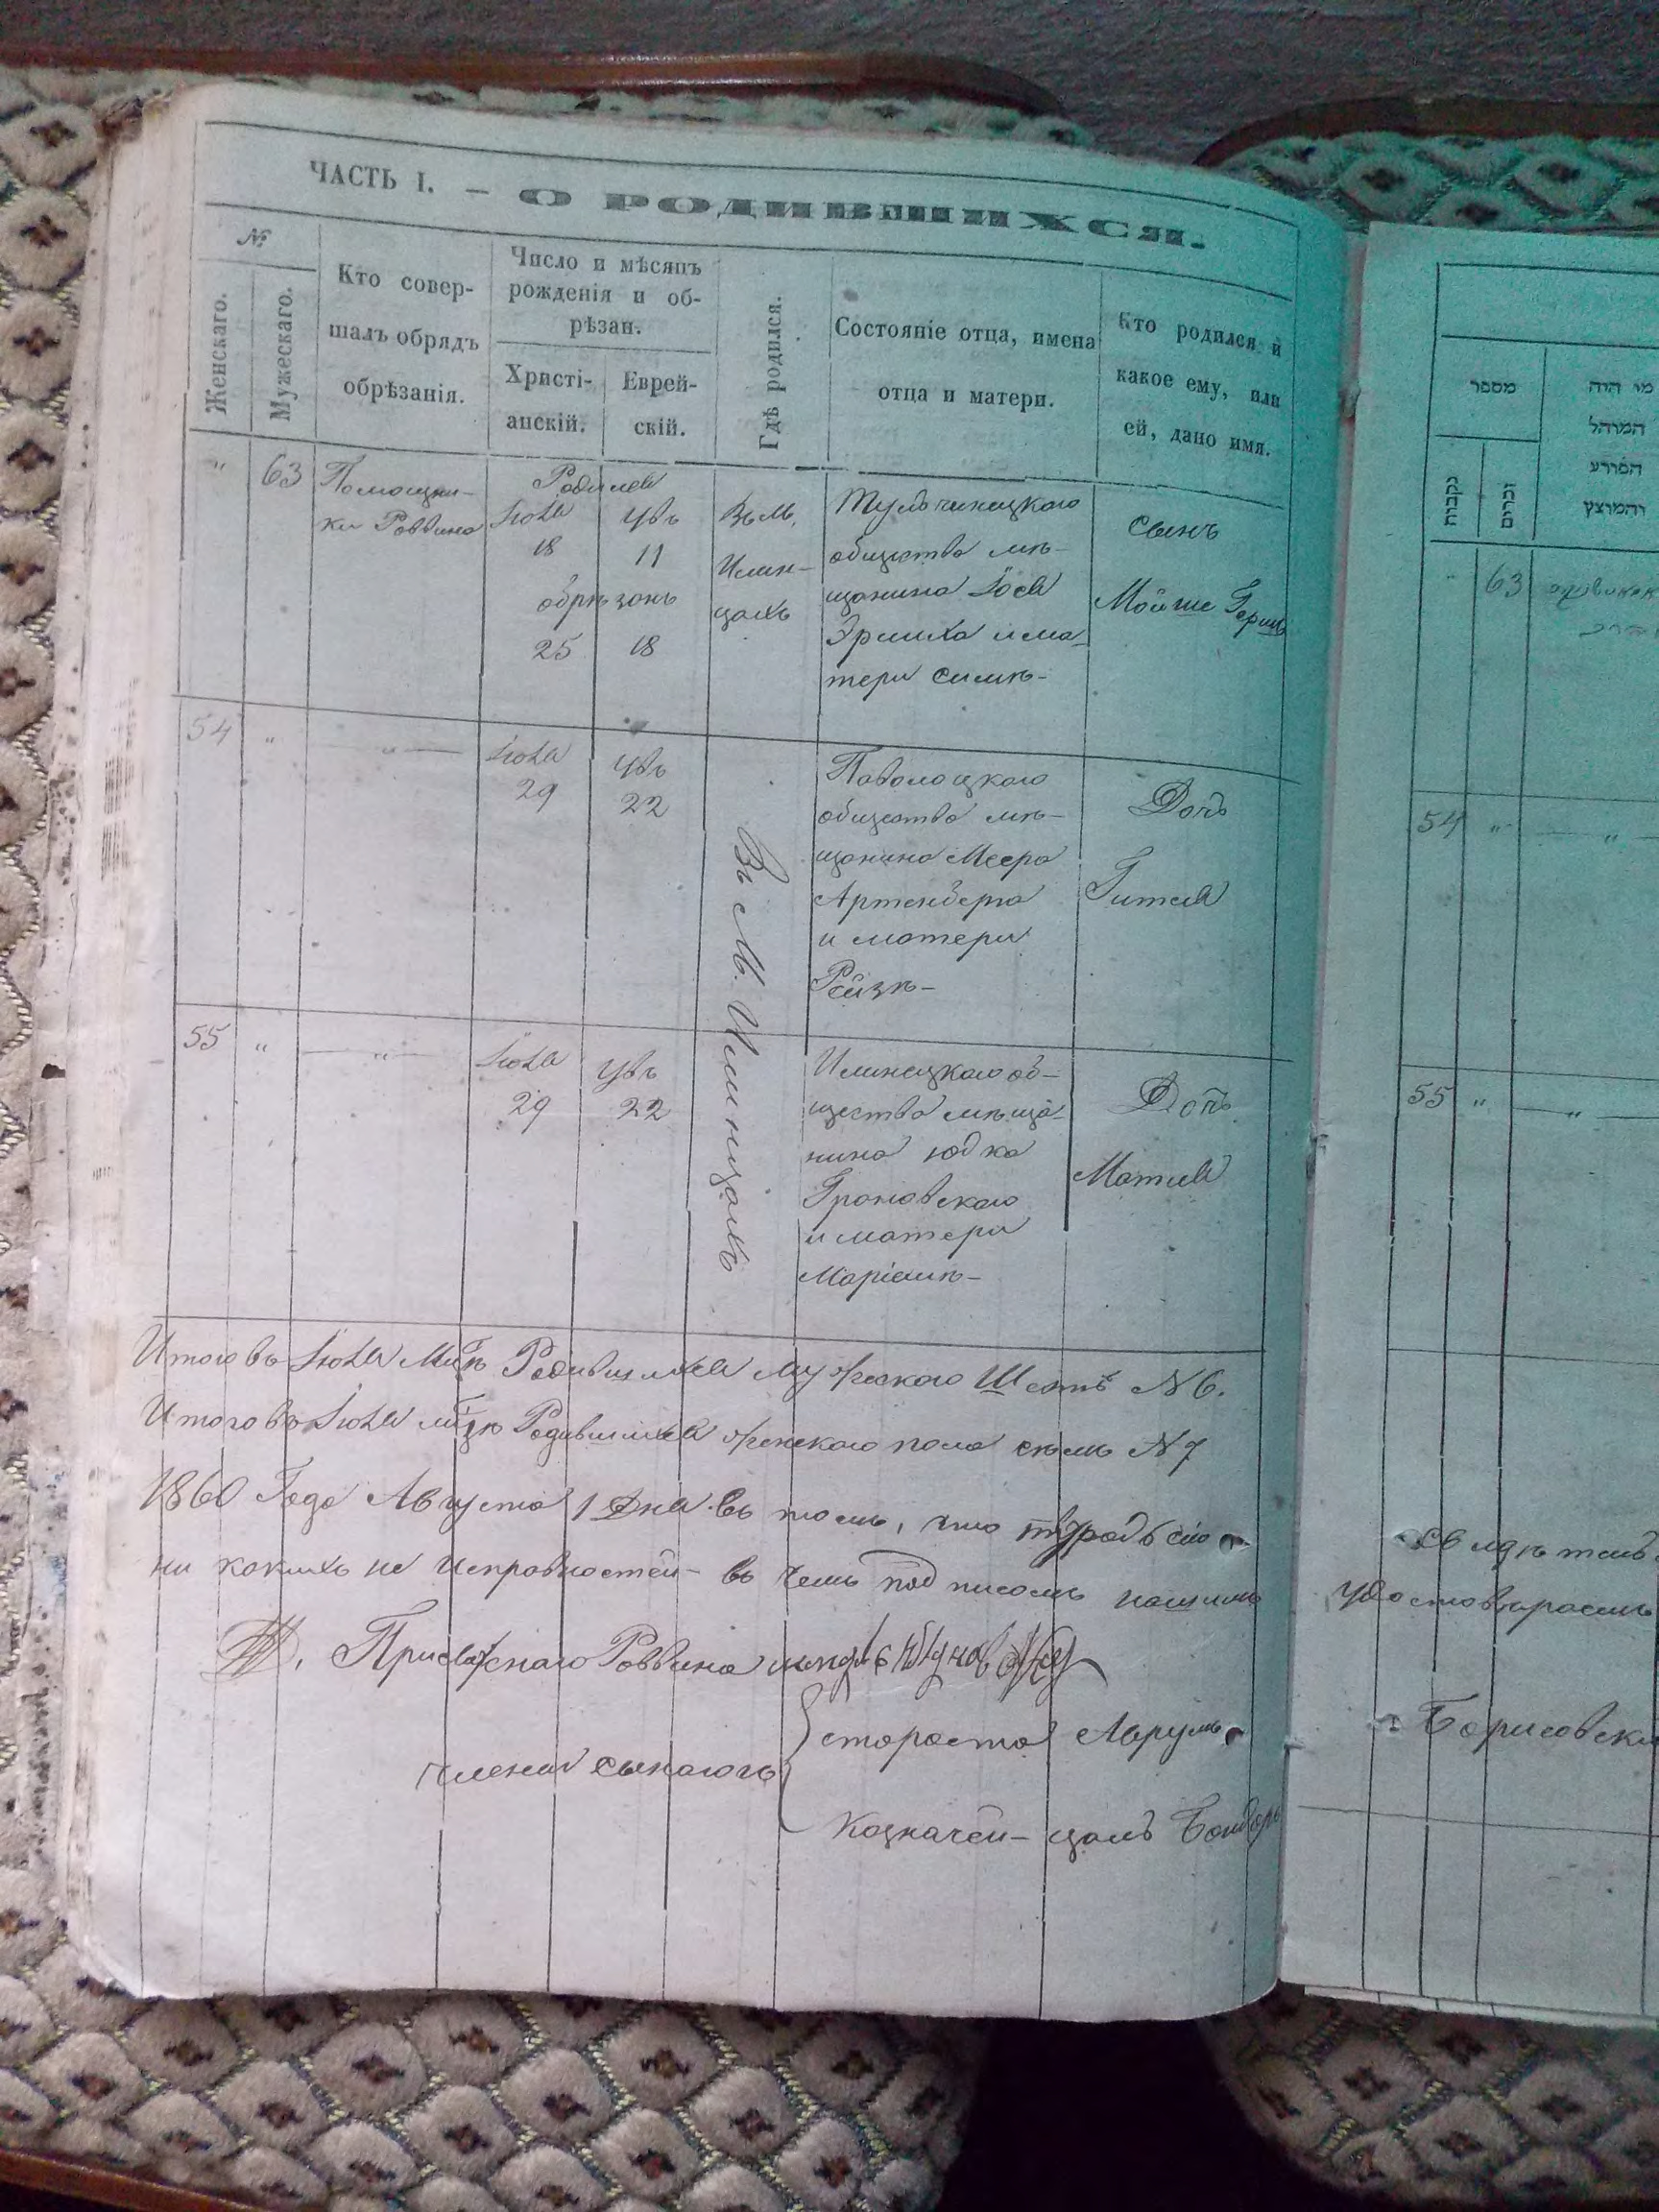 ЧАСТЬ I. — О РОДИВШИХСЯ.
№
Женскаго.
Мужескаго.
Кто совер-
шалъ обрядъ
обрѣзанія.
Число и мѣсяцъ
рожденія и об-
рѣзан.
Христі-
анскій.
Еврей-
скій.
Гдѣ родился.
Состояніе отца, имена
отца и матери.
Кто родился и
какое ему, или
ей, дано имя.
" 63
Помощни-
ки Раввина
Родился
Іюля
18
11
обрѣзанъ
25 18
Въ М.
Илин-
цахъ
Тульчинецкаго
общества мѣ-
щанина Іося
Эрлиха и ма-
тери Симѣ-
Сынъ
Мойше Гершъ
54 " — " —
Іюля
29
22
Въ М. Илинцахъ
Паволоцкаго
общества мѣ-
щанина Меера
Артенберга
и матери
Рейзѣ-
Дочь
Гитля
55 " — " —
Іюля
29
22
Илинецкаго об-
щества мѣща-
нина Юдка
Грановскаго
и матери
Маріямѣ-
Дочь
Матля
Итого въ Іюля Мцѣ Родившихся Мужескаго Шесть N 6.
Итого въ Іюля мцѣ Родившихся женскаго пола семь N 7
1860 Года Августа 1 Дня въ томъ, что
ни какихъ не исправностей- въ чемъ подписомъ нашимъ
Присяжнаго Раввина
члены сынагоги
староста Аврумъ
Казначей- Бондарь
מספר
נקבות
זכרים
מי היה
המוהל
הפורע
והמוצץ
" 63
54 " — " —
55 " — " —
удостовѣряемъ
Борисовски